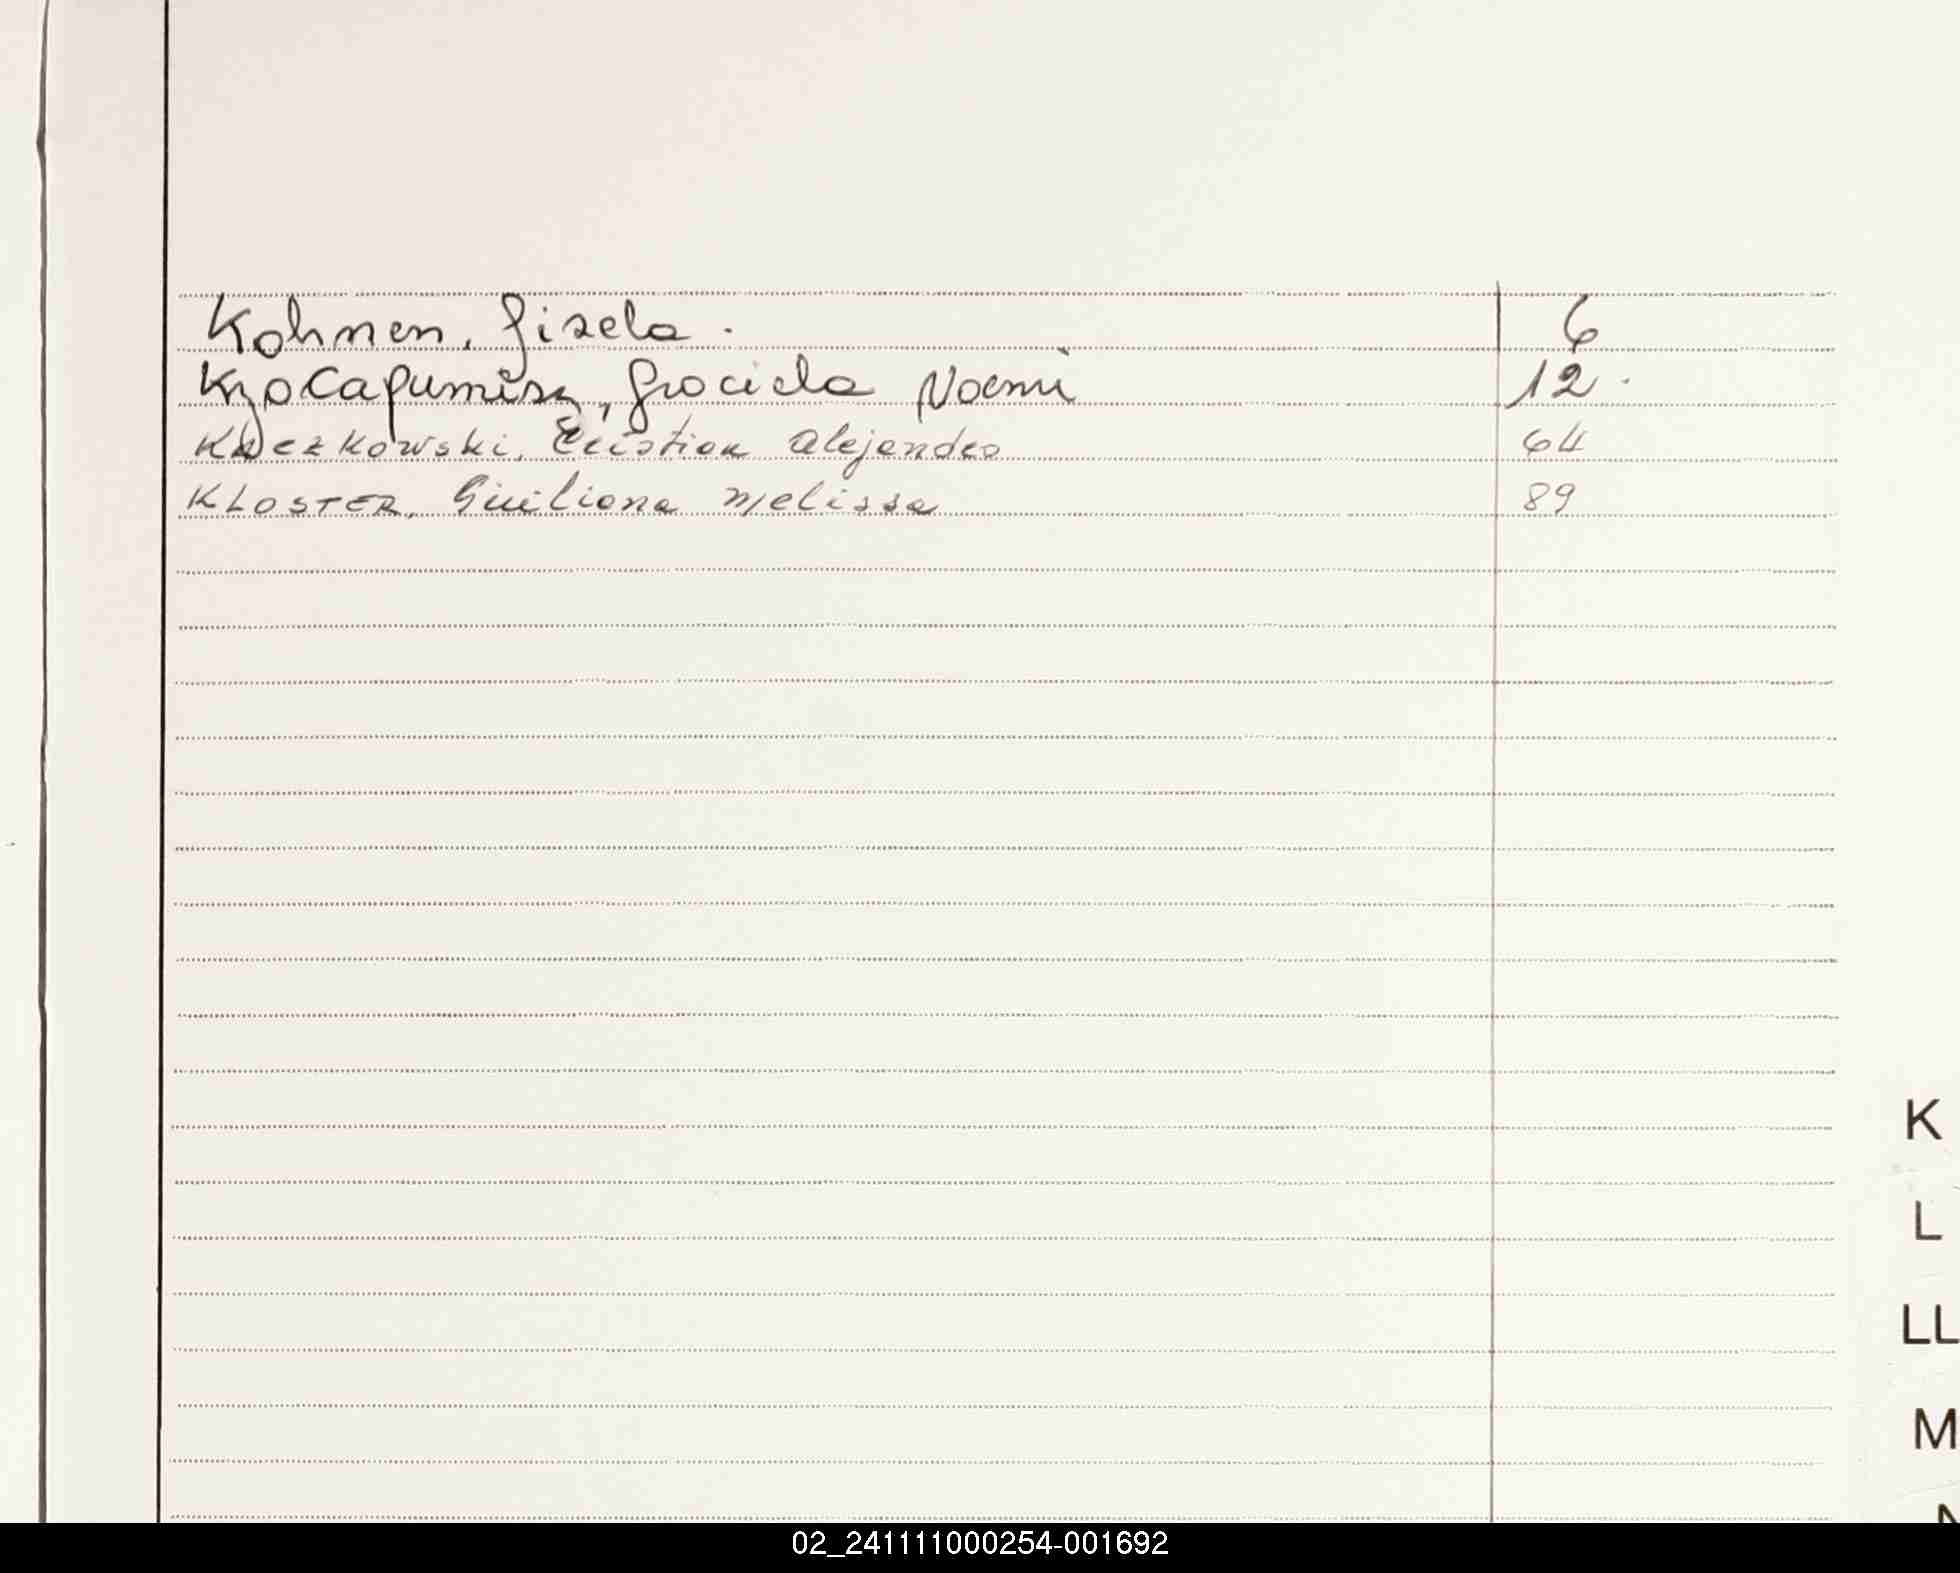 Kohnen, Gisela. 6
Graciela Noemi 12.
Kuczkowski, Cristian Alejandro 64
KLOSTER, Giuliana Melissa 89
K
L
LL
M
N
02_241111000254-001692